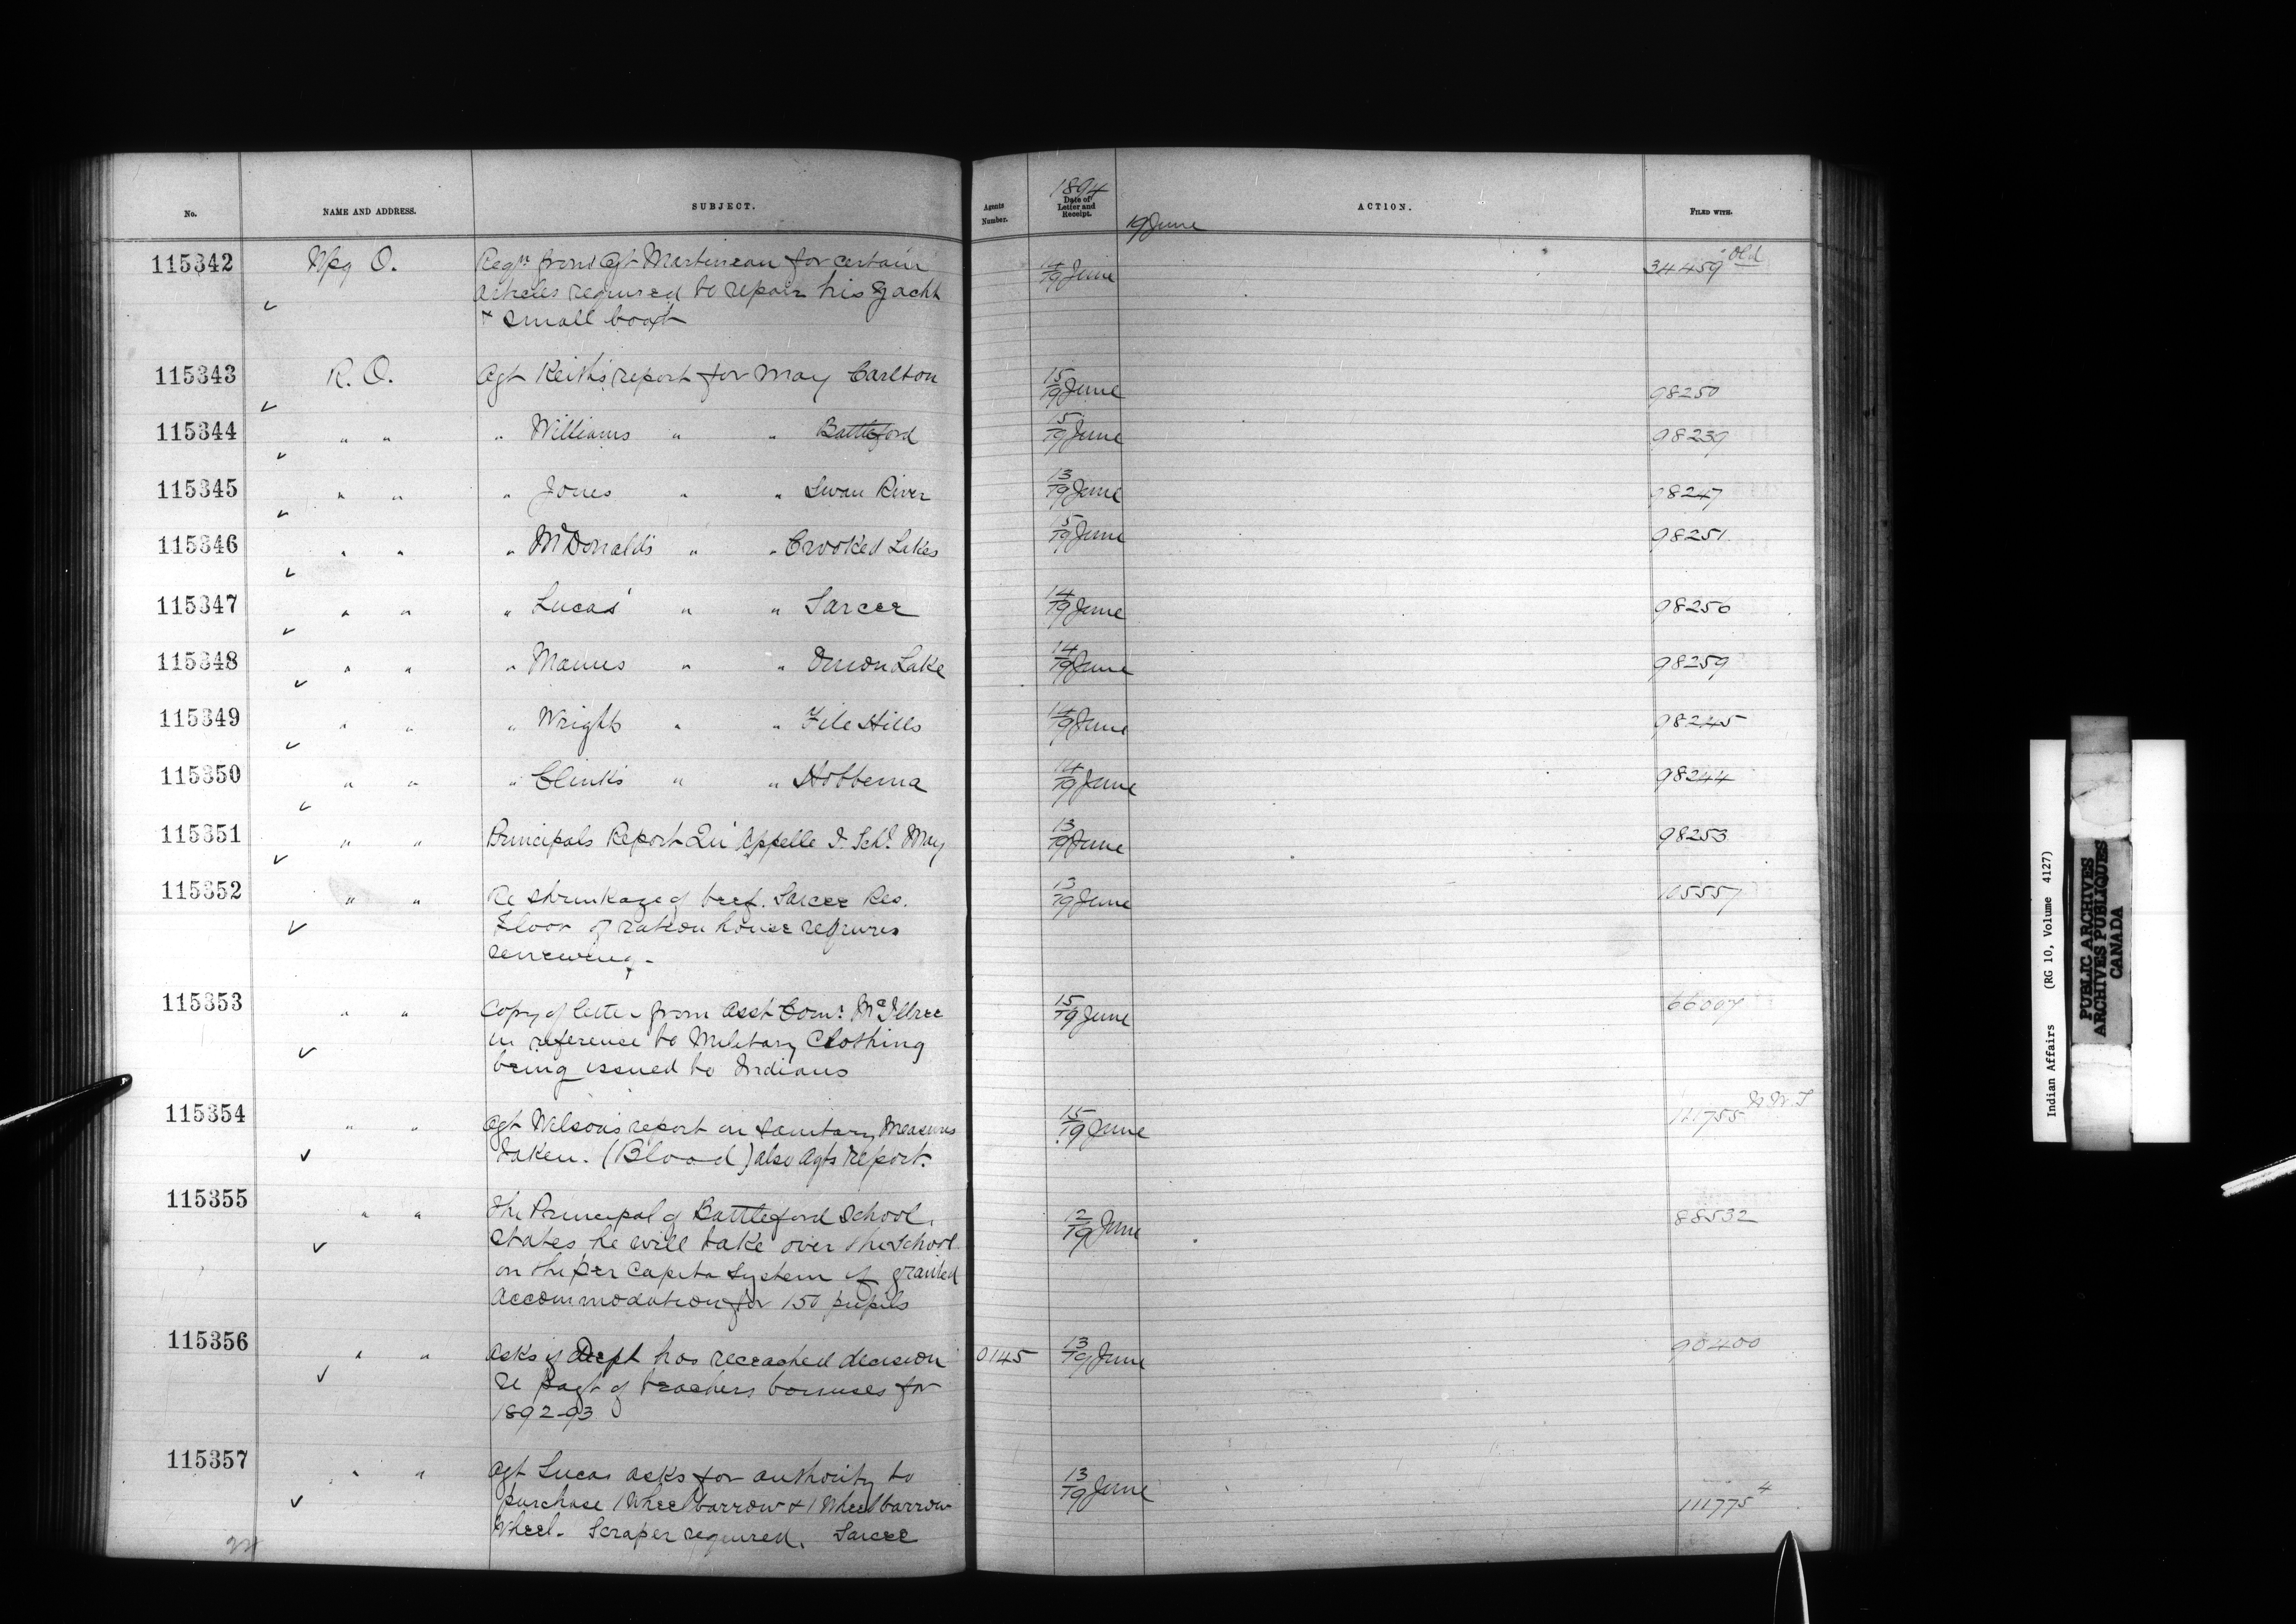 No. NAME AND ADDRESS. SUBJECT. Agents Number. 1894 Date of Letter and Receipt. 19 June ACTION. FILED WITH.
115342 Wpg O. Reqn from Agt Martineau for certain 14/19 June 34459 Old
articles required to repair his Yacht
+ small boat
115343 R. O. Agt Keith's report for May Carlton 15/19 June 98250
115344 " " " Williams " " Battleford 15/19 June 98239
115345 " " " Jones " " Swan River 13/19 June 98247
115346 " " " McDonald's " " Crooked Lakes 15/19 June 98251
115347 " " " Lucas' " " Sarcee 14/19 June 98256
115348 " " " Manns " " Onion Lake 14/19 June 98259
115349 " " " Wrights " " File Hills 14/19 June 98245
115350 " " " Clinks " " Hobbema 14/19 June 98244
115351 " " Principals Report Qu'Appelle I. Schl May 13/19 June 98253
115352 " " Re shrinkage of beef. Sarcee Res. 13/19 June 105557
Floor of ration house requires
renewing -
115353 " " Copy of letter from Asst Comr McIllree 15/19 June 66007
in reference to Military Clothing
being issued to Indians
115354 " " Agt Wilson's report on Sanitary Measures 15/19 June 121755 N.W.T
taken. (Blood) also Agts report.
115355 " " The Principal of Battleford School, 12/19 June 88532
states he will take over the School
on the per Capita System if granted
accommodation for 150 pupils
115356 " " Asks if Dept has receached decision 0145 13/19 June 90400
re pagt of teachers bonuses for
1892-93
115357 " " Agt Lucas asks for authority to 13/19 June
purchase 1 Wheelbarrow + 1 Wheelbarrow 111775 4
Wheel - Scraper required. Sarcee
Indian Affairs (RG 10, Volume 4127)
PUBLIC ARCHIVES
ARCHIVES PUBLIQUES
CANADA